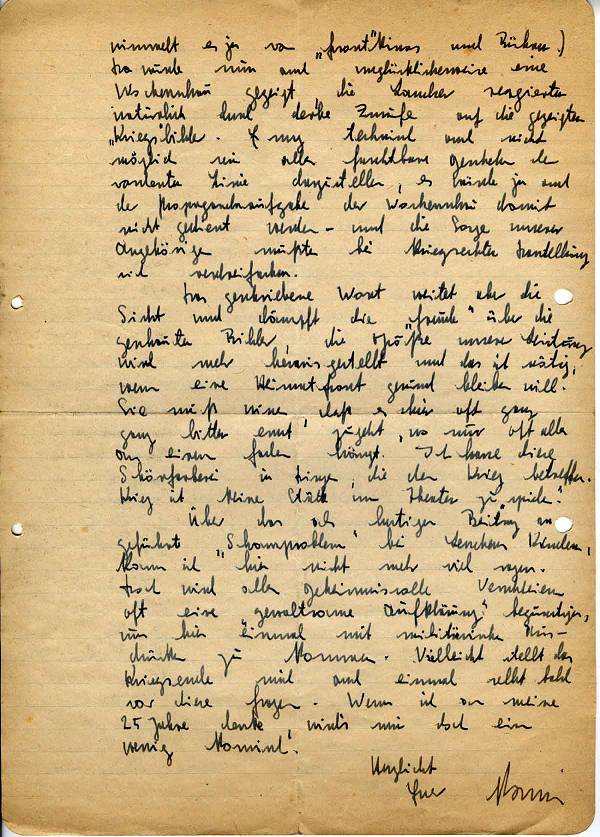 wimmelt es ja von „Front"kinos und Bühnen.)
Da wurde nun auch unglücklicherweise eine
Wochenschau gezeigt, die Landser reagierten
natürlich durch derbe Zurufe auf die gezeigten
„Kriegsbilder". Es mag technisch auch nicht
möglich sein alles furchtbare Geschehen der
vordersten Linie darzustellen, es würde ja auch
der Propagandaaufgabe der Wochenschau damit
nicht gedient werden – und die Sorge unserer
Angehörigen müßte bei kriegsechter Darstellung
sich verdreifachen.
Das geschriebene Wort weitet aber die
Sicht und dämpft die „Freude" über die
geschauten Bilder, die Größe unserer Leistung
wird mehr herausgestellt und das ist nötig,
wenn eine Heimatfront gesund bleiben will.
Sie muß wissen, daß es hier oft ganz
ganz bitter ernst zugeht, wo nur oft alles
an einem Faden hängt. Ich hasse diese
Schönfärberei in Dingen, die den Krieg betreffen.
Krieg ist keine Stätte im Theater zu spielen."
Über das als lustigen Beitrag an
geführte „Schamproblem" bei Kindern,
kann ich hier nicht mehr viel sagen.
Doch wird alles geheimnisvolle Verschleiern
oft eine „gewaltsame Aufklärung" begünstigen,
um hier einmal mit militärischen Aus-
drücken zu kommen. Vielleicht stellt das
Kriegsende mich auch einmal selbst bald
vor diese Fragen. Wenn ich an meine
25 Jahre denke, wird's mir doch ein
wenig komisch.
Herzlichst
Euer